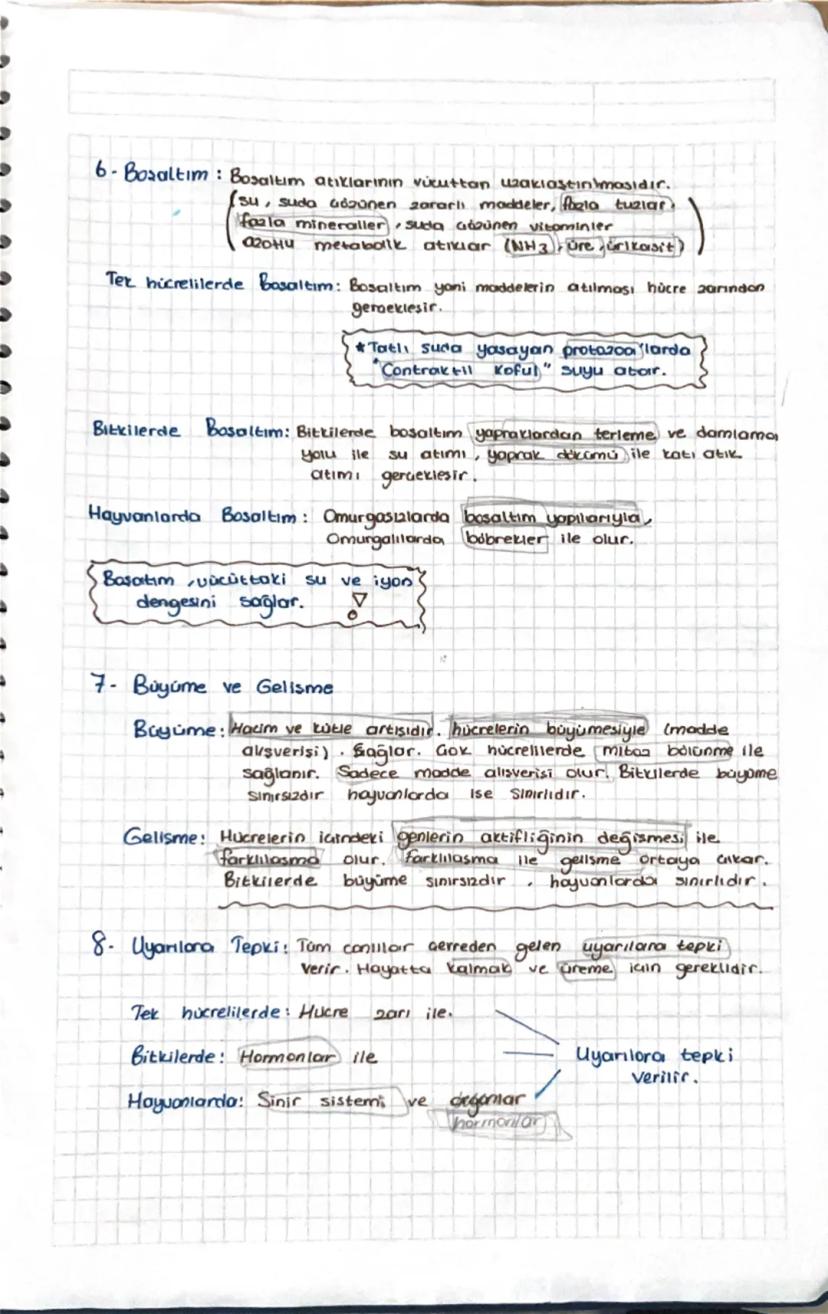 6- Boşaltım : Boşaltım atıklarının vücuttan uzaklaştırılmasıdır.
(su, suda çözünen zararlı maddeler, fazla tuzlar,
fazla mineraller, suda çözünen vitaminler
azotlu metabolik atıklar (NH3), üre, ürikasit)
Tek hücrelilerde Boşaltım: Boşaltım yani maddelerin atılması hücre zarından
gerçekleşir.
*Tatlı suda yaşayan protozoa'larda
"Contraktil Koful" suyu atar.
Bitkilerde Boşaltım: Bitkilerde boşaltım yapraklardan terleme ve damlama
yolu ile su atımı, yaprak dökümü ile katı atık
atımı gerçekleşir.
Hayvanlarda Boşaltım: Omurgasızlarda boşaltım yapılarıyla,
Omurgalılarda böbrekler ile olur.
Boşaltım, vücüttaki su ve iyon
dengesini sağlar. !
7- Büyüme ve Gelişme
Büyüme: Hacim ve kütle artışıdır. hücrelerin büyümesiyle (madde
alışverişi). Sağlar. Çok hücrelilerde mitoz bölünme ile
sağlanır. Sadece madde alışverişi olur. Bitkilerde büyüme
sınırsızdır hayvanlarda ise sınırlıdır.
Gelişme: Hücrelerin içindeki genlerin aktifliğinin değişmesi ile
farklılaşma olur. farklılaşma ile gelişme ortaya çıkar.
Bitkilerde büyüme sınırsızdır, hayvanlarda sınırlıdır.
8- Uyarılara Tepki: Tüm canlılar çevreden gelen uyarılara tepki
verir. Hayatta kalmak ve üreme için gereklidir.
Tek hücrelilerde: Hücre zarı ile.
Bitkilerde: Hormonlar ile
Uyarılara tepki
verilir.
Hayvanlarda: Sinir sistemi ve organlar
hormonlar